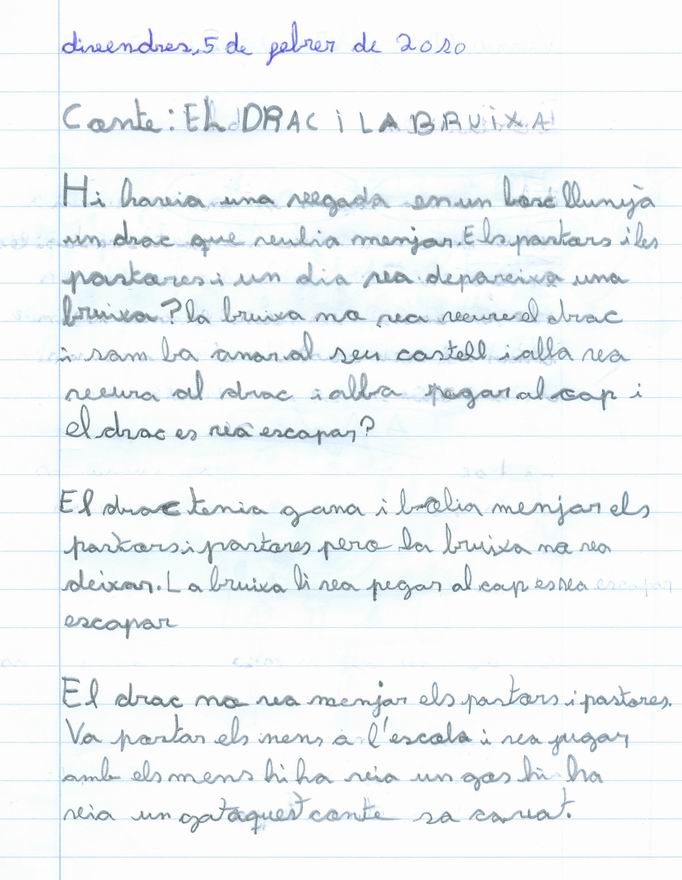 divendres, 5 de febrer de 2010
Conte: EL DRAC i LA BRUiXA
Hi havia una vegada en un bosc llunyà
un drac que vulia menjar. Els pastors i les
pastores i un dia va depareixa una
bruixa? la bruixa no va veure el drac
i sam ba anar al seu castell i alla va
veura al drac i alba pegar al cap i
el drac es va escapar?
El drac tenia gana i bolia menjar els
pastors i pastores pero la bruixa no va
deixar. La bruixa li va pegar al cap es va escapar
escapar
El drac no va menjar els pastors i pastores.
Va portar els nens a l'escola i va jugar
amb els nens hi ha via un gos hi ha
via un gat aquest conte sa cavat.